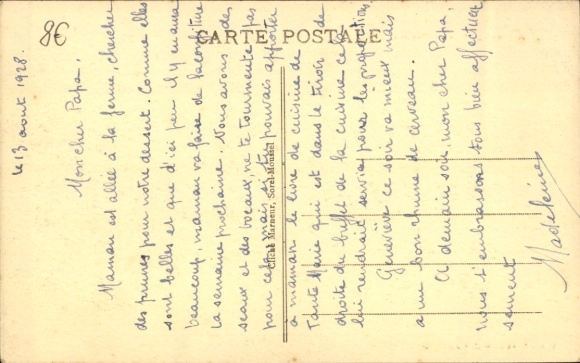 8€
CARTE POSTALE
Cliché Marneur, Sorel-Moussel
le 13 aout 1928.
Mon cher Papa,
Maman est allée à la ferme, chercher
des prunes pour notre dessert. Comme elles
sont belles et que d'ici peu il y en aura
beaucoup, maman va faire de la confiture
la semaine prochaine. Nous avons des
seaux et des bocaux, ne te tourmente pas
pour cela, mais si tu pouvais apporter
a maman le livre de cuisine de
Tante Marie qui est dans le tiroir de
droite du buffet de la cuisine cela
lui rendrait service pour les proportions
Geneviève ce soir va mieux mais
a un bon rhume de cerveau.
A demain soir mon cher Papa,
nous t'embrassons tous bien affectueu
sement
Madeleine